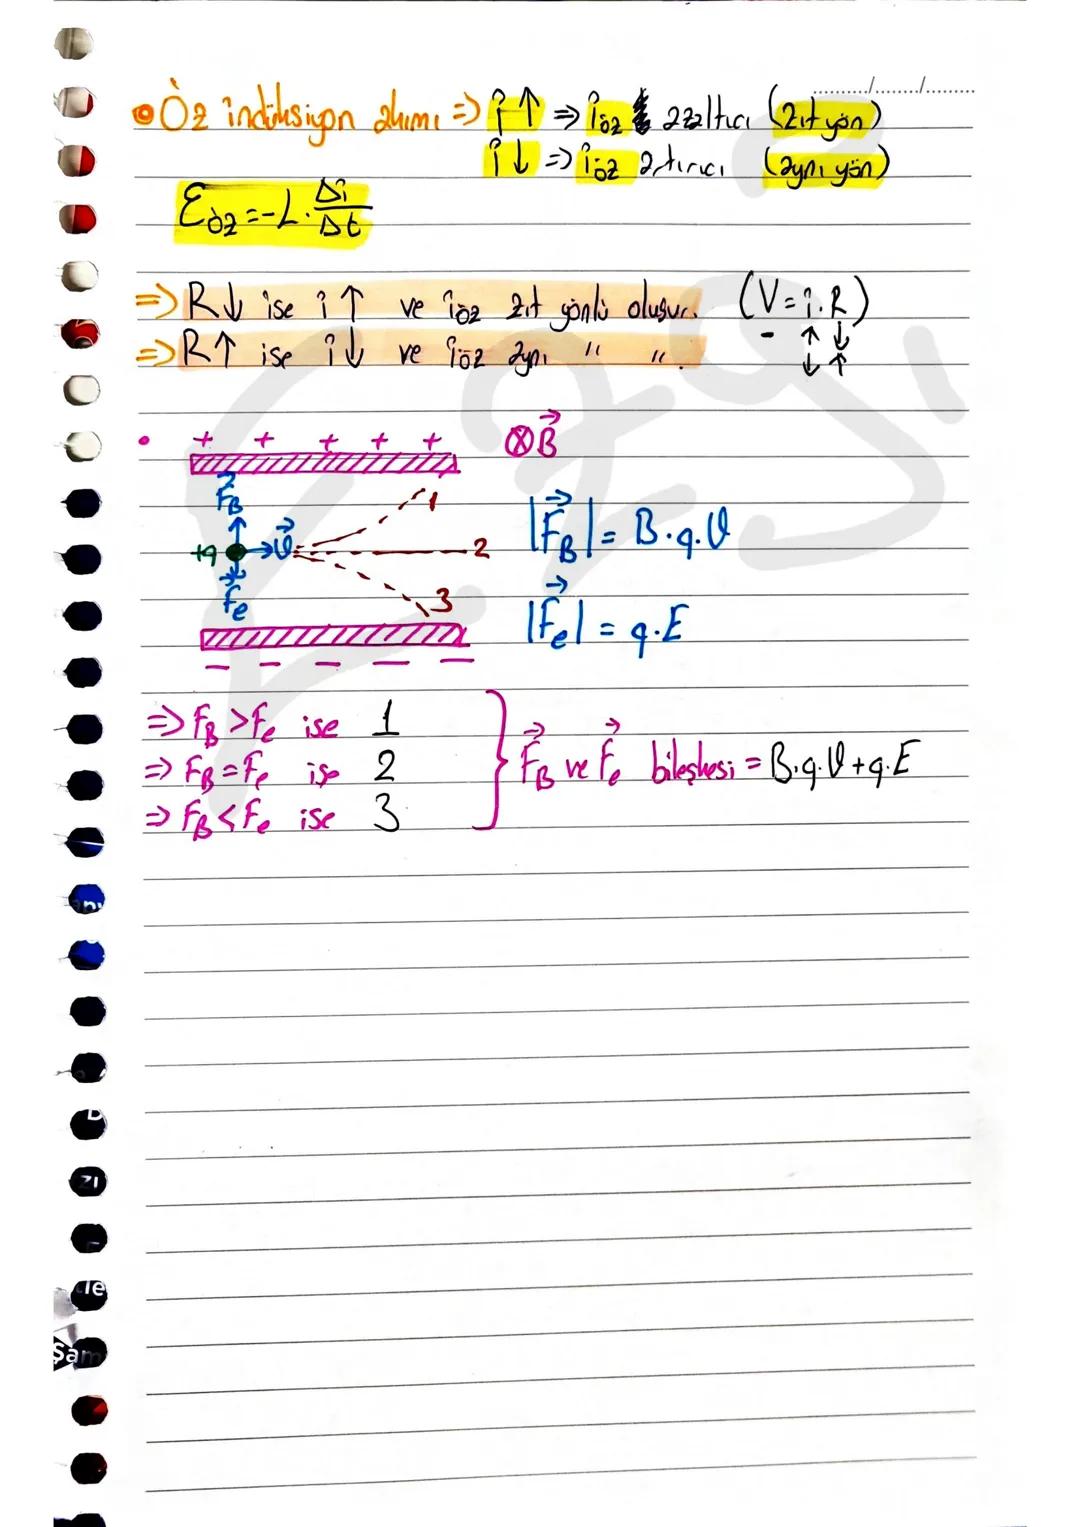 ......../......../........
Öz indüksiyon akımı => i↑ => iöz azaltıcı (zıt yön)
i↓ => iöz artırıcı (aynı yön)
Ɛöz = -L . Δi/Δt
=> R↓ ise i↑ ve iöz zıt yönlü oluşur. (V = i.R)
=> R↑ ise i↓ ve iöz aynı " ". - ↑↓ ↓↑
+ + + + + ⊗B⃗
F⃗B 1
+q v⃗ 2 |F⃗B| = B.q.υ
F⃗e 3
|F⃗e| = q.E
— — — — —
=> FB > Fe ise 1
=> FB = Fe ise 2 } F⃗B ve F⃗e bileşkesi = B.q.υ + q.E
=> FB < Fe ise 3
ZI
Şam